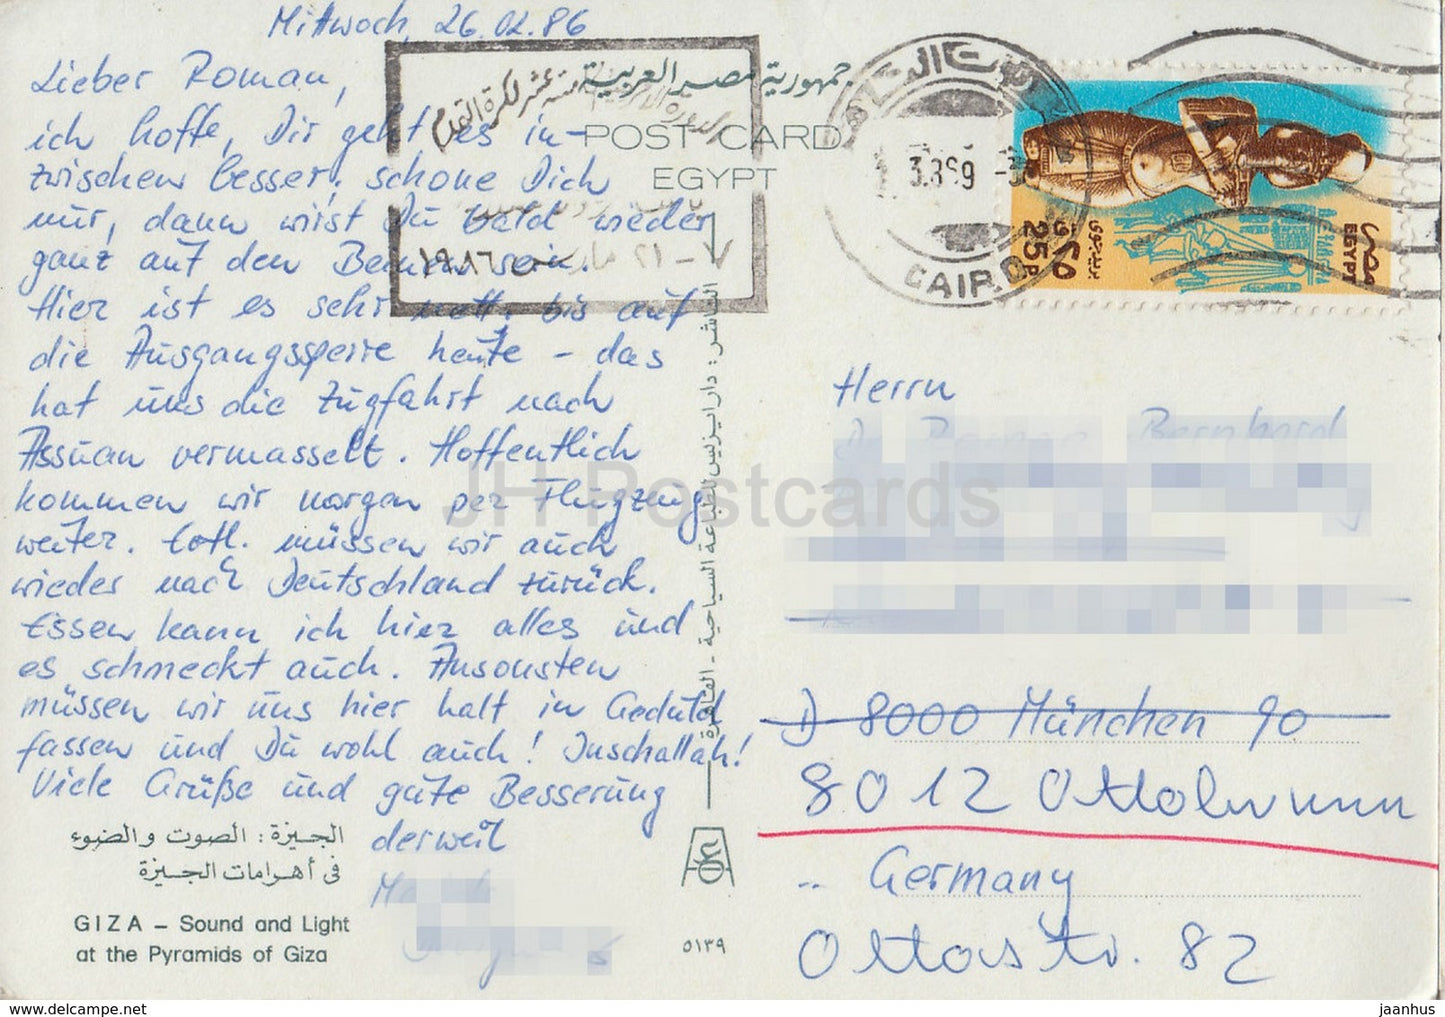 Mittwoch, 26.02.86
Lieber Roman,
ich hoffe, Dir geht es in-
zwischen besser, schone Dich
nur, dann wirst Du bald wieder
ganz auf den Beinen sein.
Hier ist es sehr nett, bis auf
die Ausgangssperre heute – das
hat uns die Zugfahrt nach
Assuan vermasselt. Hoffentlich
kommen wir morgen per Flugzeug
weiter. Evtl. müssen wir auch
wieder nach Deutschland zurück.
Essen kann ich hier alles und
es schmeckt auch. Ansonsten
müssen wir uns hier halt in Geduld
fassen und Du wohl auch! Inschallah!
Viele Grüße und gute Besserung
derweil
الجيزة : الصوت والضوء
فى أهرامات الجيزة
GIZA – Sound and Light
at the Pyramids of Giza
جمهورية مصر العربية
POST CARD
EGYPT
لكرة القدم
٢١ مارس ١٩٨٦
الناشر : دار ايزيس للطباعة السياحية - القاهرة
٥١٣٩
CAIRO
مصر
EGYPT
25 P
٢٥
Herrn
D 8000 München 90
8012 Ottobrunn
Germany
Ottostr. 82
JH Postcards
jaanhus